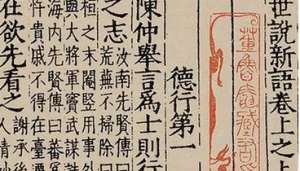 世說新語卷上之上
德行第一
陳仲舉言為士則行
之志
汝南先賢傳曰
荒蕪不掃除曰
桓之末閹豎用事外
與大將軍竇武謀誅
海內先賢傳曰蕃
忤貴戚不得在臺
在欲先看之
謝承後